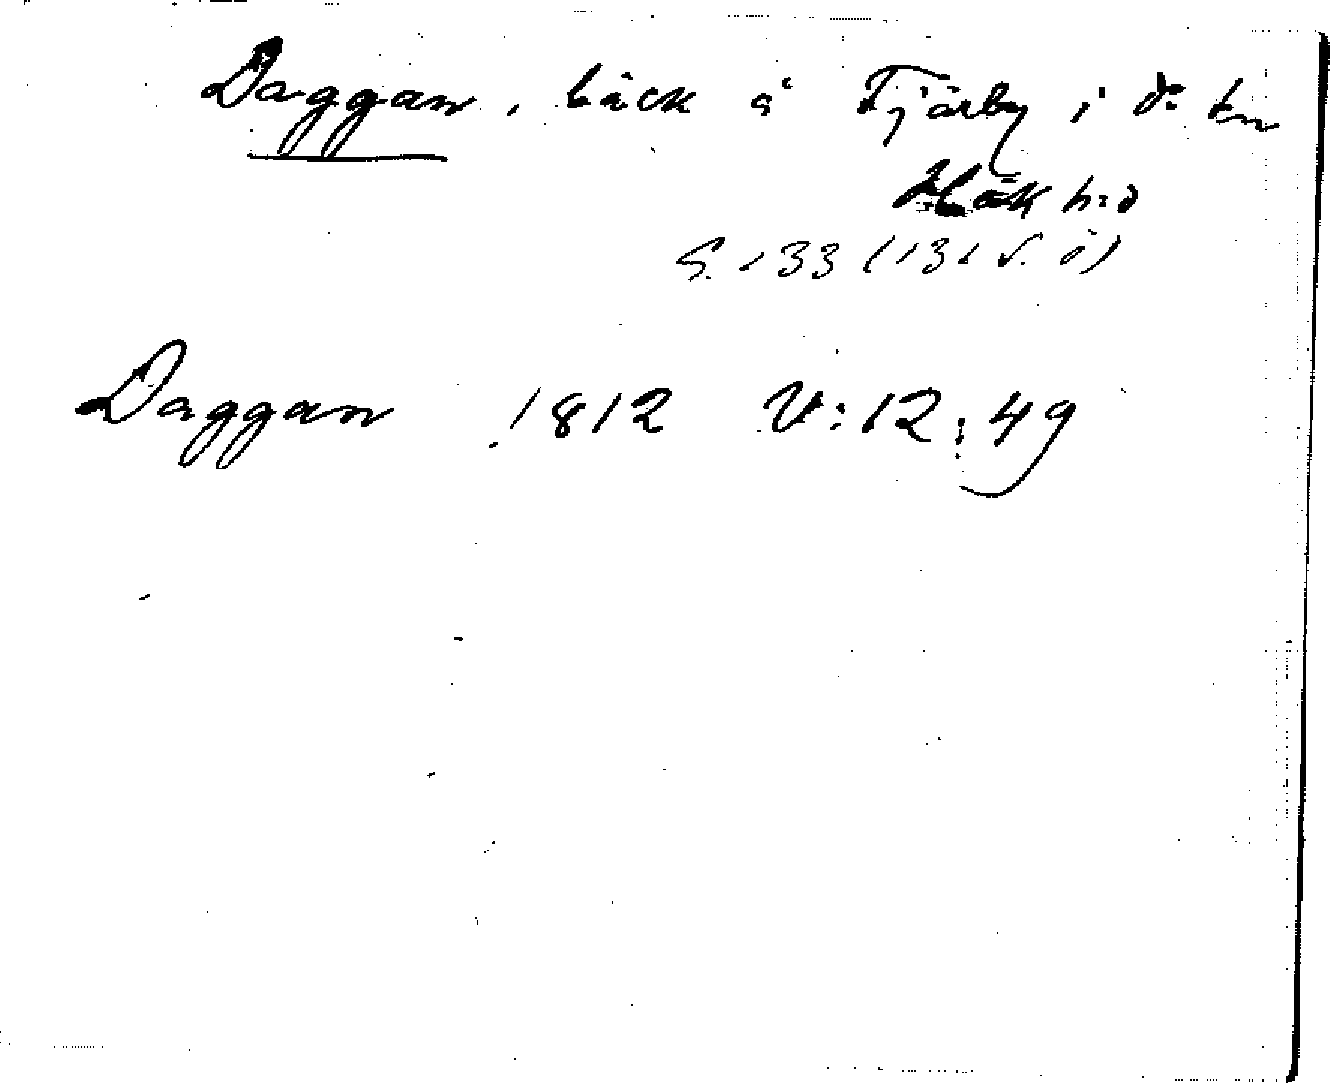 Daggan, bäck å Tjärby i d:o sn
Hök h:d
S. 133 (131 v. ö)
Daggan 1812 V:12:49